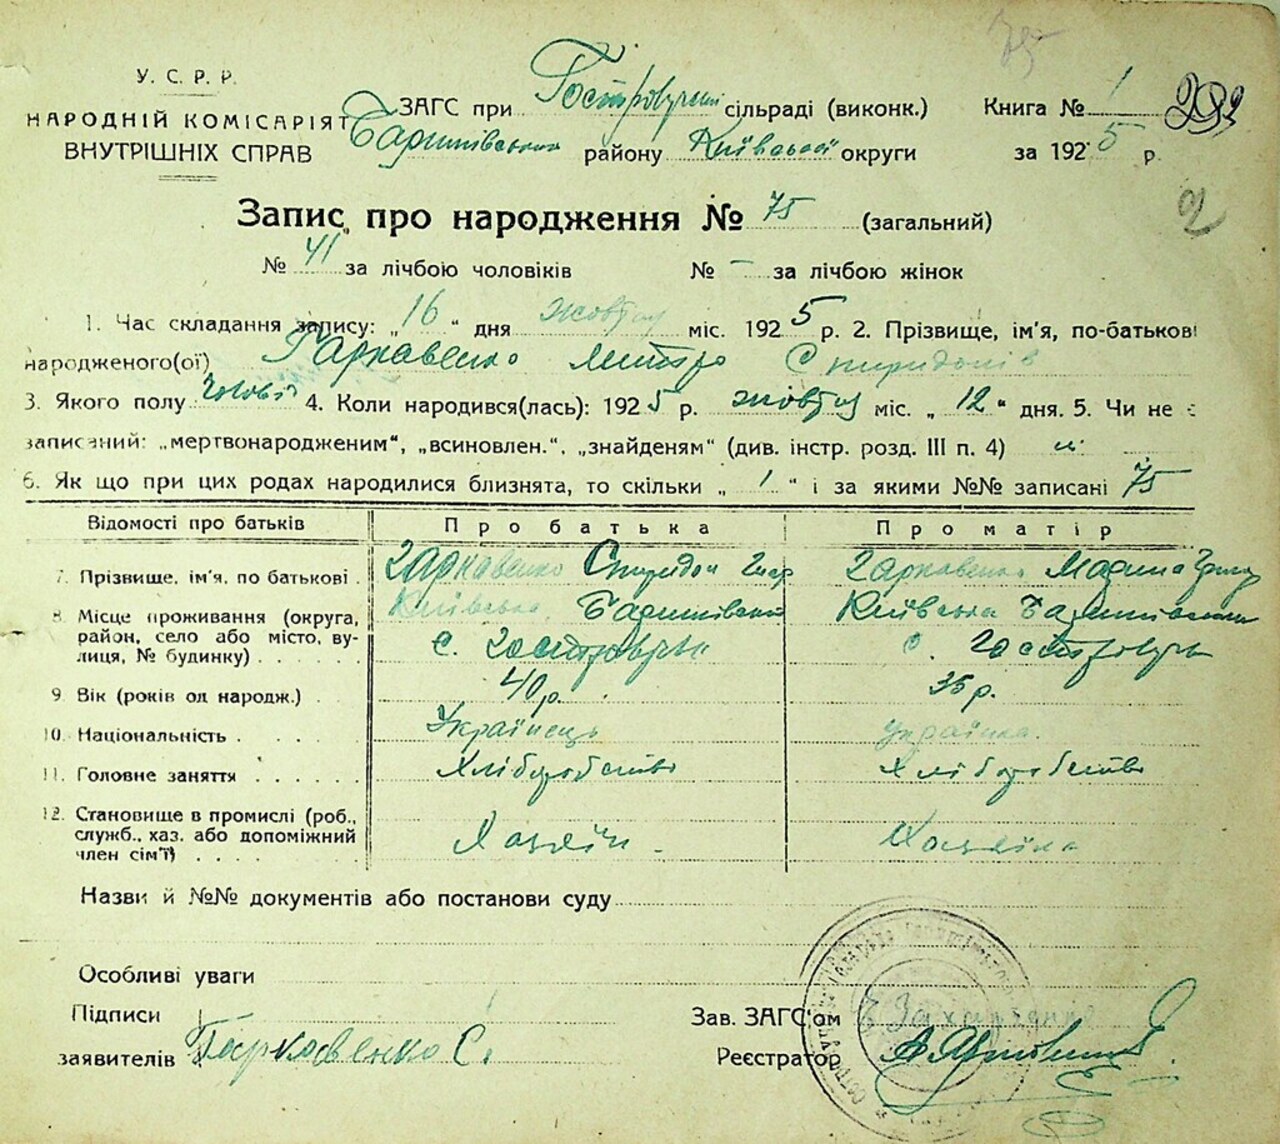 75
У. С. Р. Р.
НАРОДНІЙ КОМІСАРІЯТ
ВНУТРІШНІХ СПРАВ
ЗАГС при Гостролучській сільраді (виконк.)
Баришівського району Київської округи
Книга № 1
за 1925 р.
2
Запис про народження № 75 (загальний)
№ 41 за лічбою чоловіків № - за лічбою жінок
1. Час складання запису: „16“ дня жовтня міс. 1925 р. 2. Прізвище, ім'я, по-батькові
народженого(ої) Гаркавенко Митро Спиридонів
3. Якого полу чолов. 4. Коли народився(лась): 1925 р. жовтня міс. „12“ дня. 5. Чи не є
записаний: „мертвонародженим“, „всиновлен.“, „знайденям“ (див. інстр. розд. III п. 4) ні
6. Як що при цих родах народилися близнята, то скільки „1“ і за якими №№ записані 75
Відомості про батьків Про батька Про матір
7. Прізвище, ім'я, по батькові . Гаркавенко Спиридон Гаркавенко Марина
8. Місце проживання (округа, район, село або місто, вулиця, № будинку) . . . . . . Київська Баришівський с. Гостролуччя Київська Баришівський с. Гостролуччя
9. Вік (років од народж.) . 40 р. 35 р.
10. Національність . . . . . Українець Українка.
11. Головне заняття . . . . . . Хліборобство Хліборобство
12. Становище в промислі (роб., служб., хаз. або допоміжний член сім'ї) . . . . Хазяїн Хазяїка
Назви й №№ документів або постанови суду
Особливі уваги
Підписи
заявителів Гаркавенко С.
Зав. ЗАГС'ом Захарченко
Реєстратор